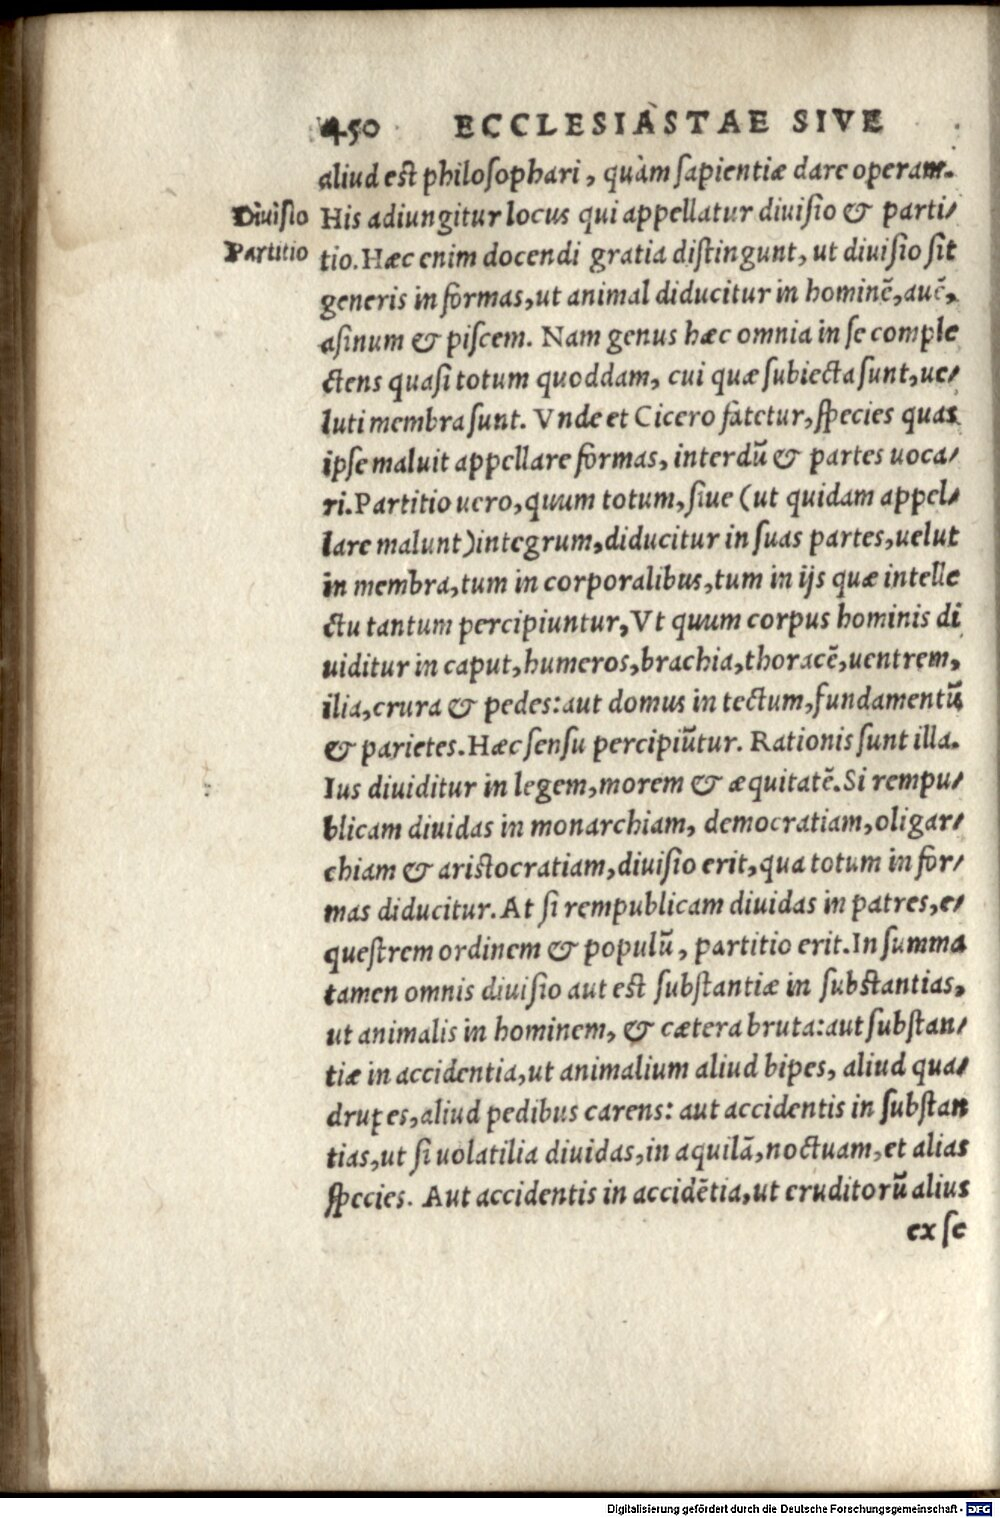 450 ECCLESIASTAE SIVE
aliud est philosophari, quàm sapientiæ dare operam.
Diuisio His adiungitur locus qui appellatur diuisio & parti/
Partitio tio. Hæc enim docendi gratia distingunt, ut diuisio sit
generis in formas, ut animal diducitur in hominē, auē,
asinum & piscem. Nam genus hæc omnia in se comple
ctens quasi totum quoddam, cui quæ subiecta sunt, ue/
luti membra sunt. Vnde et Cicero fatetur, species quas
ipse maluit appellare formas, interdū & partes uoca/
ri. Partitio uero, quum totum, siue (ut quidam appel/
lare malunt) integrum, diducitur in suas partes, uelut
in membra, tum in corporalibus, tum in ijs quæ intelle
ctu tantum percipiuntur, Vt quum corpus hominis di
uiditur in caput, humeros, brachia, thoracē, uentrem,
ilia, crura & pedes: aut domus in tectum, fundamentū
& parietes. Hæc sensu percipiūtur. Rationis sunt illa.
Ius diuiditur in legem, morem & æquitatē. Si rempu/
blicam diuidas in monarchiam, democratiam, oligar/
chiam & aristocratiam, diuisio erit, qua totum in for/
mas diducitur. At si rempublicam diuidas in patres, e/
questrem ordinem & populū, partitio erit. In summa
tamen omnis diuisio aut est substantiæ in substantias,
ut animalis in hominem, & cætera bruta: aut substan/
tiæ in accidentia, ut animalium aliud bipes, aliud qua/
drupes, aliud pedibus carens: aut accidentis in substan
tias, ut si uolatilia diuidas, in aquilā, noctuam, et alias
species. Aut accidentis in accidētia, ut eruditorū alius
ex se
Digitalisierung gefördert durch die Deutsche Forschungsgemeinschaft - DFG